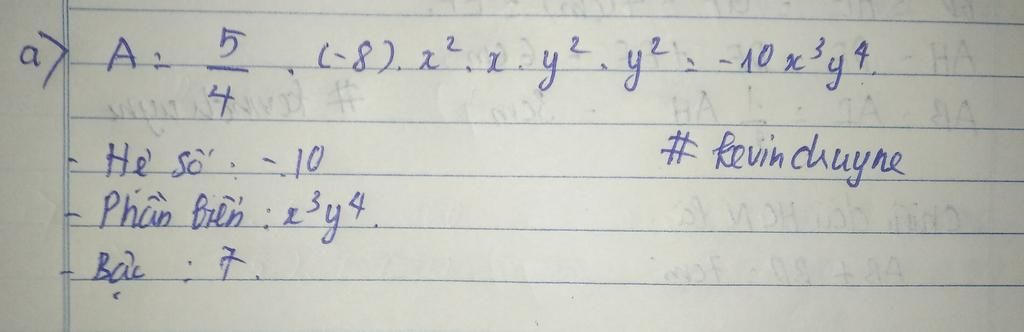 a) A = 5/4 . (-8). x². x. y². y² = -10x³y⁴.
- Hệ số : -10
# kevinchuyne
- Phần biến : x³y⁴.
- Bậc : 7.